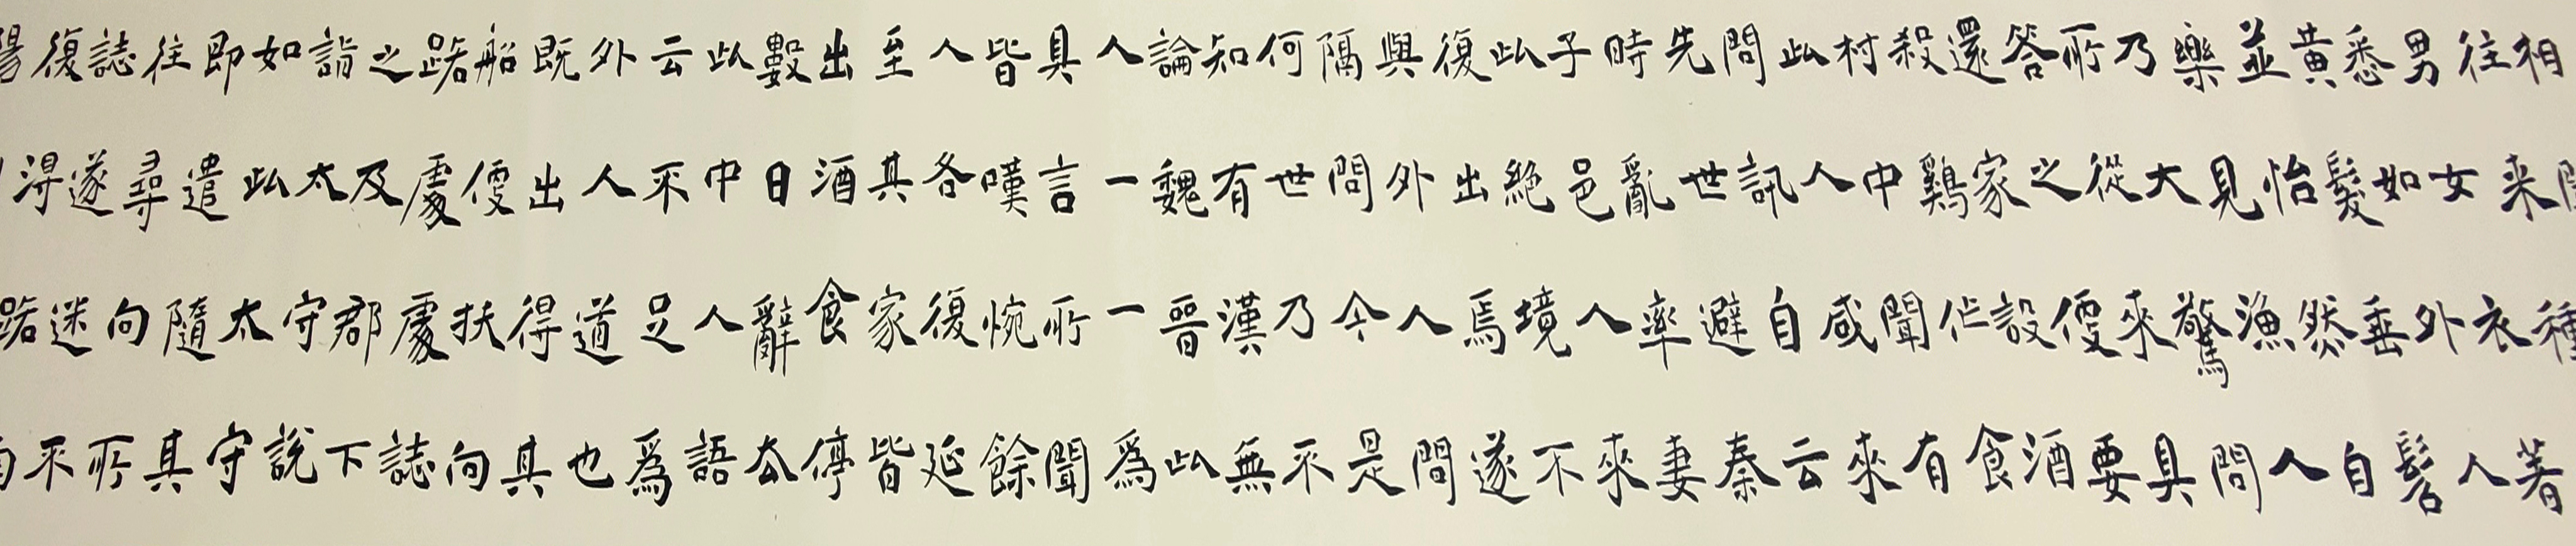 相聞
往来種作
男女衣著
悉如外人
黄髮垂髫
並怡然自
樂見漁人
乃大驚問
所從來具
答之便要
還家設酒
殺鷄作食
村中聞有
此人咸來
問訊自云
先世避秦
時亂率妻
子邑人來
此絕境不
復出焉遂
與外人間
隔問今是
何世乃不
知有漢無
論魏晉此
人一一為
具言所聞
皆嘆惋餘
人各復延
至其家皆
出酒食停
數日辭去
此中人語
云不足為
外人道也
既出得其
船便扶向
路處處誌
之及郡下
詣太守說
如此太守
即遣隨其
往尋向所
誌遂迷不
復得路南
陽